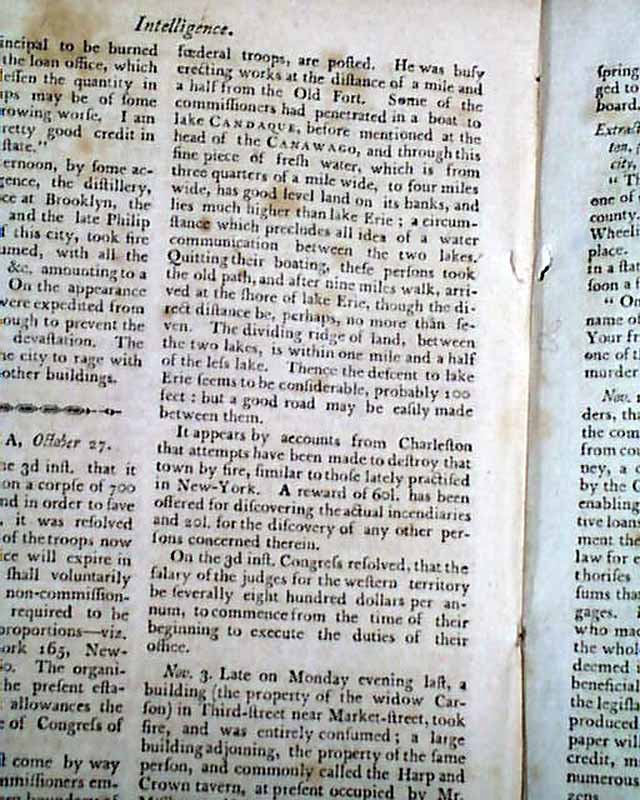 Intelligence.
incipal to be burned
the loan office, which
lessen the quantity in
ips may be of some
rowing worse. I am
retty good credit in
state."
ternoon, by some ac-
gence, the distillery,
ce at Brooklyn, the
and the late Philip
f this city, took fire
umed, with all the
&c. amounting to a
On the appearance
were expedited from
ough to prevent the
devastation. The
he city to rage with
other buildings.
A, October 27.
he 3d inst. that it
on a corpse of 700
nd in order to save
, it was resolved
of the troops now
ice will expire in
shall voluntarily
non-commission-
required to be
proportions—viz.
ork 165, New-
60. The organi-
he present esta-
allowances the
e of Congress of
st come by way
mmissioners em-
fœderal troops, are posted. He was busy
erecting works at the distance of a mile and
a half from the Old Fort. Some of the
commissioners had penetrated in a boat to
lake CANDAQUE, before mentioned at the
head of the CANAWAGO, and through this
fine piece of fresh water, which is from
three quarters of a mile wide, to four miles
wide, has good level land on its banks, and
lies much higher than lake Erie; a circum-
stance which precludes all idea of a water
communication between the two lakes.
Quitting their boating, these persons took
the old path, and after nine miles walk, arri-
ved at the shore of lake Erie, though the di-
rect distance be, perhaps, no more than se-
ven. The dividing ridge of land, between
the two lakes, is within one mile and a half
of the less lake. Thence the descent to lake
Erie seems to be considerable, probably 100
feet: but a good road may be easily made
between them.
It appears by accounts from Charleston
that attempts have been made to destroy that
town by fire, similar to those lately practised
in New-York. A reward of 60l. has been
offered for discovering the actual incendiaries
and 20l. for the discovery of any other per-
sons concerned therein.
On the 3d inst. Congress resolved, that the
salary of the judges for the western territory
be severally eight hundred dollars per an-
num, to commence from the time of their
beginning to execute the duties of their
office.
Nov. 3. Late on Monday evening last, a
building (the property of the widow Car-
son) in Third-street near Market-street, took
fire, and was entirely consumed; a large
building adjoining, the property of the same
person, and commonly called the Harp and
Crown tavern, at present occupied by Mr.
spring
ged to
board.
Extract
ton,
city,
" Th
one of
county.
Wheeli
place.
in a stat
soon a f
" On
name of
Your fr
one of t
murder
Nov. 1
ders, tha
the com
from cou
ney, a c
by the C
enabling
tive loans
ment the
law for e
thorises
sums that
gages. I
who ma
the whol
deemed
beneficial
the legisl
produced
paper will
credit, m
numerous
zens